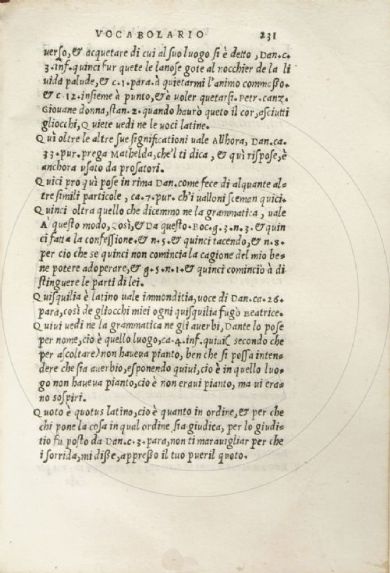 VOCABOLARIO 231
uerso, & acquetare di cui al suo luogo si è detto, Dan.c.
3.inf.quinci fur quete le lanose gote al nocchier de la li
uida palude, & c.1.para.à quietarmi l'animo commosso.
& c.12.insieme à punto, & à uoler quetarsi. Petr.canz.
Giouane donna, stan.2.quando haurò queto il cor, asciutti
gliocchi, Quiete uedi ne le uoci latine.
Qui oltre le altre sue significationi uale Allhora, Dan.ca.
33.pur.prega Mathelda, che'l ti dica, & quì rispose, è
anchora usato da prosatori.
Quici pro quì pose in rima Dan.come fece di alquante al=
tre simili particole, ca.7.pur.ch'i ualloni sceman quici.
Quinci oltra quello che dicemmo ne la grammatica, uale
A questo modo, Così, & Da questo.Boc.g.3.n.3.& quin
ci fatta la confessione. & n.5.& quinci tacendo, & n.8.
per cio che se quinci non comincia la cagione del mio bene
ne potere adoperare, & g.5.n.1.& quinci cominciò à di
stinguere le parti di lei.
Quisquilia è latino uale immonditia, uoce di Dan.ca.26.
para, così de gliocchi miei ogni quisquilia fugò Beatrice.
Quiui uedi ne la grammatica ne gli auerbi, Dante lo pose
per nome, cio è quello luogo, ca.4.inf.quiui secondo che
per ascoltare) non haueua pianto, ben che si possa inten=
dere che sia auerbio, esponendo quiui, cio è in quello luo=
go non haueua pianto, cio è non eraui pianto, ma ui era=
no sospiri.
Quoto è quotus latino, cio è quanto in ordine, & per che
chi pone la cosa in qual ordine sia giudica, per lo giudi=
tio fu posto da Dan.c.3.para, non ti marauigliar per che
i sorrida, mi disse, appresso il tuo pueril quoto.